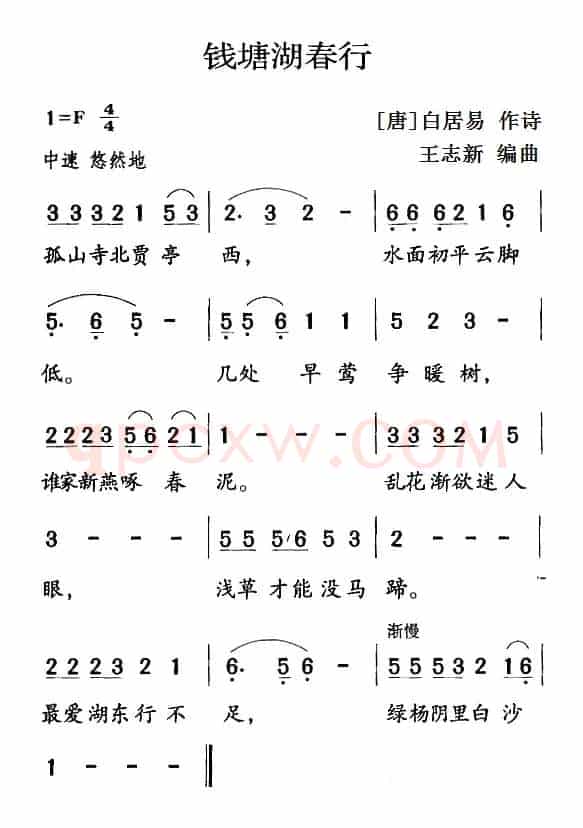 钱塘湖春行
1=F 4/4
[唐]白居易 作诗
中速 悠然地
王志新 编曲
3 3 3 2 1 5 3 | 2. 3 2 - | 6 6 6 2 1 6
孤山寺北贾亭 西, 水面初平云脚
5. 6 5 - | 5 5 6 1 1 | 5 2 3 -
低。 几处 早莺 争暖树,
2 2 2 3 5 6 2 1 | 1 - - - | 3 3 3 2 1 5
谁家新燕啄 春 泥。 乱花渐欲迷人
qpcxw.COM
3 - - - | 5 5 5 6 5 3 | 2 - - -
眼, 浅草才能没马 蹄。
渐慢
2 2 2 3 2 1 | 6. 5 6 - | 5 5 5 3 2 1 6
最爱湖东行不 足, 绿杨阴里白沙
1 - - -